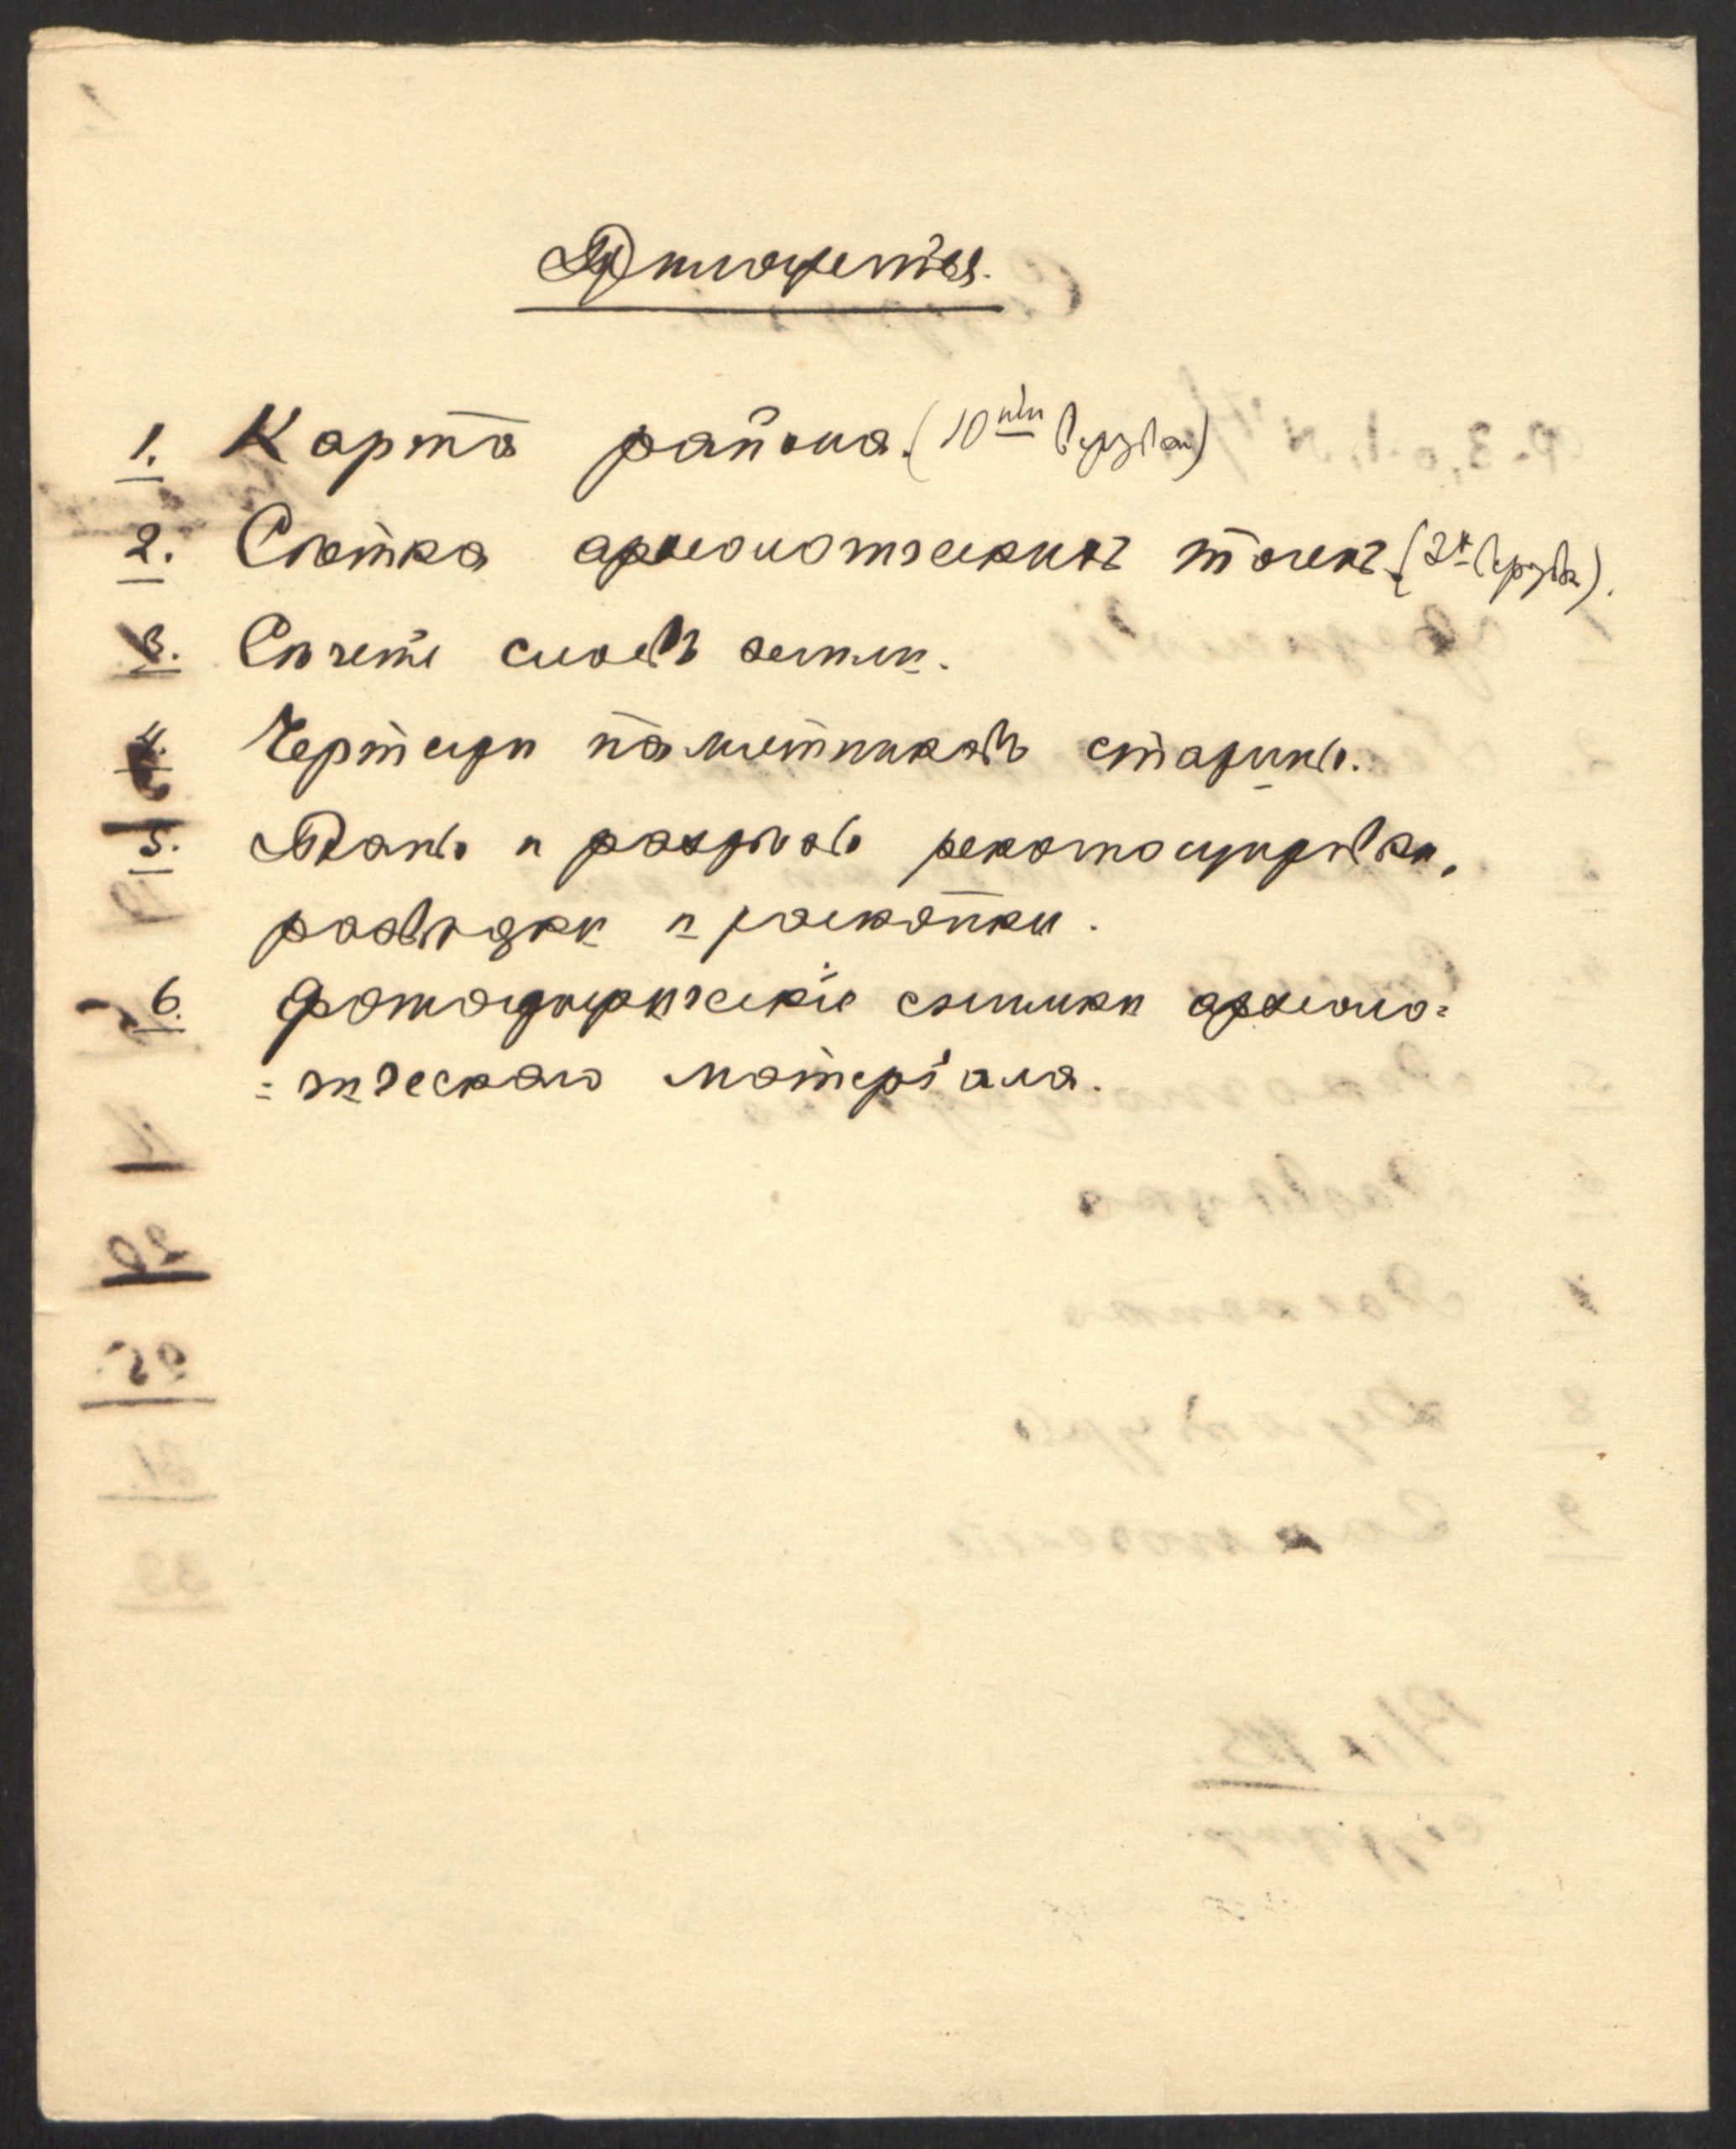 Приложенія.
1. Карта района. (10ти верстная)
2. Сѣтка археологическихъ точекъ. (2х верстка).
3. Сѣченія слоевъ земли.
4. Чертежи памятниковъ старины.
5. Планы и разрѣзы рекогносцировки,
развѣдки и раскопки.
6. Фотографическіе снимки археоло=
=гическаго матеріала.